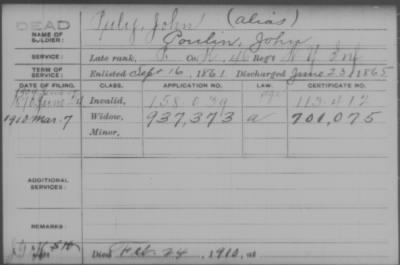 DEAD
NAME OF SOLDIER: Puly, John (alias)
Poulin, John
SERVICE: Late rank, P Co. K, 46 Reg't N Y Inf
TERM OF SERVICE: Enlisted Sept 16, 1861 Discharged June 23, 1865
DATE OF FILING. CLASS. APPLICATION NO. LAW. CERTIFICATE NO.
Invalid, 158.039
1910 Mar. 7 Widow, 937,373 a 701,075
Minor,
ADDITIONAL SERVICES:
REMARKS:
Died Feb 24, 1910, at